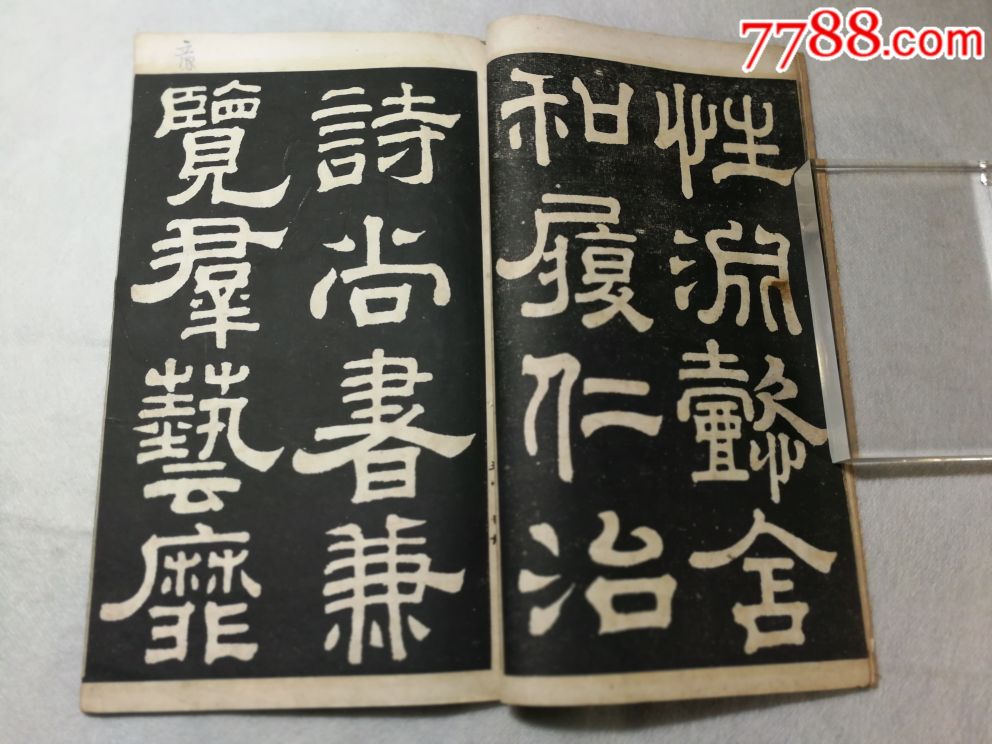 7788.com
性淵懿含
和履仁治
詩尚書兼
覽羣藝靡